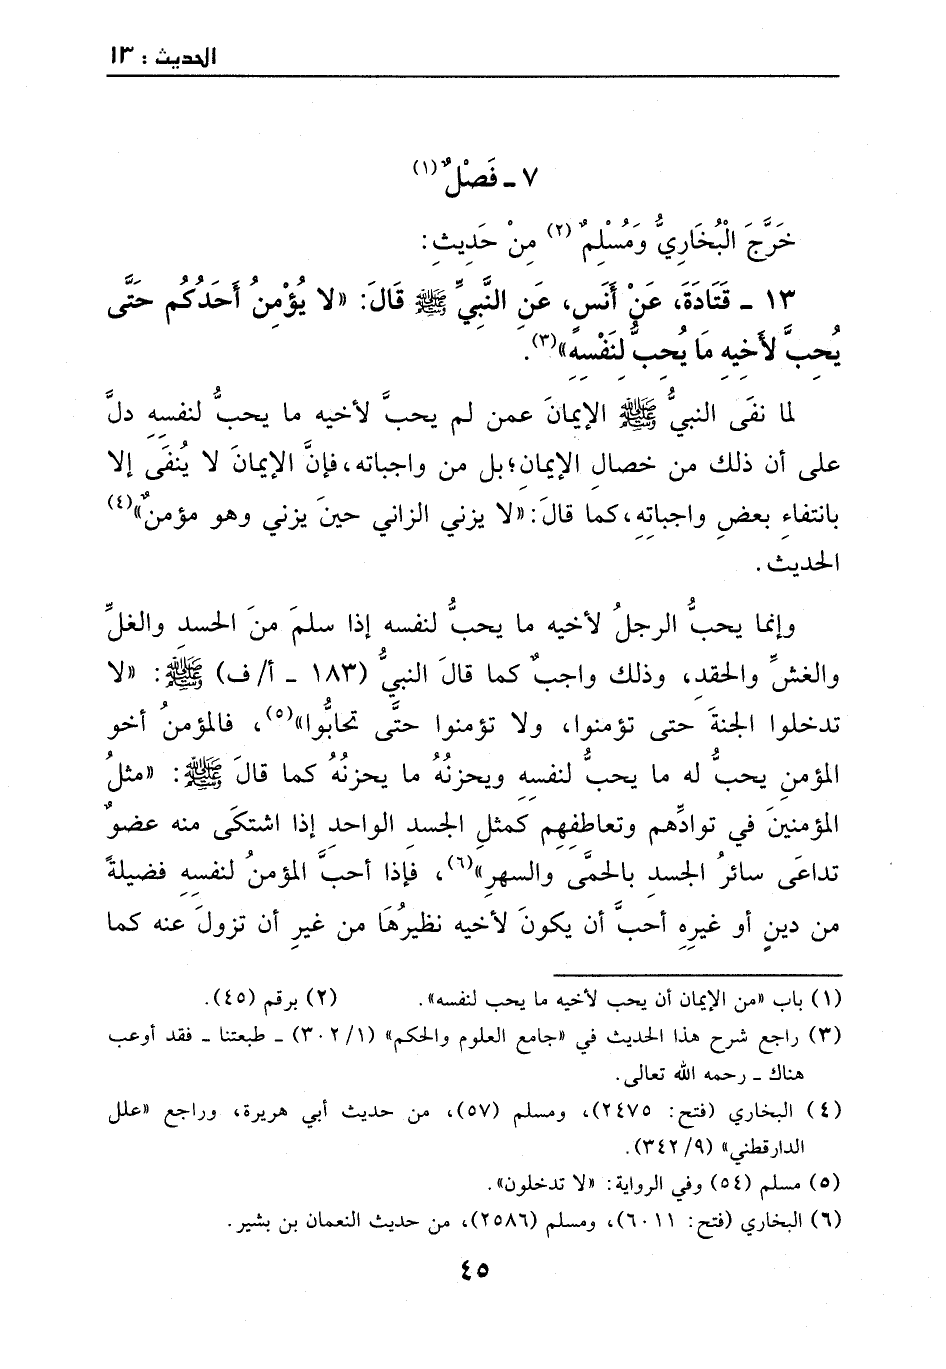 الحديث : ١٣
٧ ـ فَصْلٌ (١)
خَرَّجَ الْبُخَارِيُّ وَمُسْلِمٌ (٢) مِنْ حَدِيثِ:
١٣ ـ قَتَادَةَ، عَنْ أَنَسٍ، عَنِ النَّبِيِّ ﷺ قَالَ: «لا يُؤْمِنُ أَحَدُكُم حَتَّى
يُحِبَّ لأَخِيهِ مَا يُحِبُّ لِنَفْسِهِ»(٣).
لما نفَى النبيُّ ﷺ الإيمانَ عمن لم يحبَّ لأخيه ما يحبُّ لنفسِهِ دلَّ
على أن ذلك من خصالِ الإيمانِ؛ بل من واجباته، فإنَّ الإيمانَ لا يُنفَى إلا
بانتفاءِ بعضِ واجباتِهِ، كما قالَ: «لا يزني الزاني حينَ يزني وهو مؤمنٌ»(٤)
الحديث.
وإنما يحبُّ الرجلُ لأخيه ما يحبُّ لنفسه إذا سلمَ منَ الحسدِ والغلِّ
والغشِّ والحقدِ، وذلك واجبٌ كما قالَ النبيُّ (١٨٣ ـ أ/ ف) ﷺ: «لا
تدخلوا الجنةَ حتى تؤمنوا، ولا تؤمنوا حتَّى تحابُّوا»(٥)، فالمؤمنُ أخو
المؤمنِ يحبُّ له ما يحبُّ لنفسِهِ ويحزنُهُ ما يحزنُهُ كما قالَ ﷺ: «مثلُ
المؤمنينَ في توادِّهم وتعاطفِهِم كمثلِ الجسدِ الواحدِ إذا اشتكَى منه عضوٌ
تداعَى سائرُ الجسدِ بالحمَّى والسهرِ»(٦)، فإذا أحبَّ المؤمنُ لنفسِهِ فضيلةً
من دينٍ أو غيرِهِ أحبَّ أن يكونَ لأخيه نظيرُهَا من غيرِ أن تزولَ عنه كما
(١) باب «من الإيمان أن يحب لأخيه ما يحب لنفسه». (٢) برقم (٤٥).
(٣) راجع شرح هذا الحديث في «جامع العلوم والحكم» (١/ ٣٠٢) ـ طبعتنا ـ فقد أوعب
هناك ـ رحمه الله تعالى.
(٤) البخاري (فتح: ٢٤٧٥)، ومسلم (٥٧)، من حديث أبي هريرة، وراجع «علل
الدارقطني» (٩/ ٣٤٢).
(٥) مسلم (٥٤) وفي الرواية: «لا تدخلون».
(٦) البخاري (فتح: ٦٠١١)، ومسلم (٢٥٨٦)، من حديث النعمان بن بشير.
٤٥